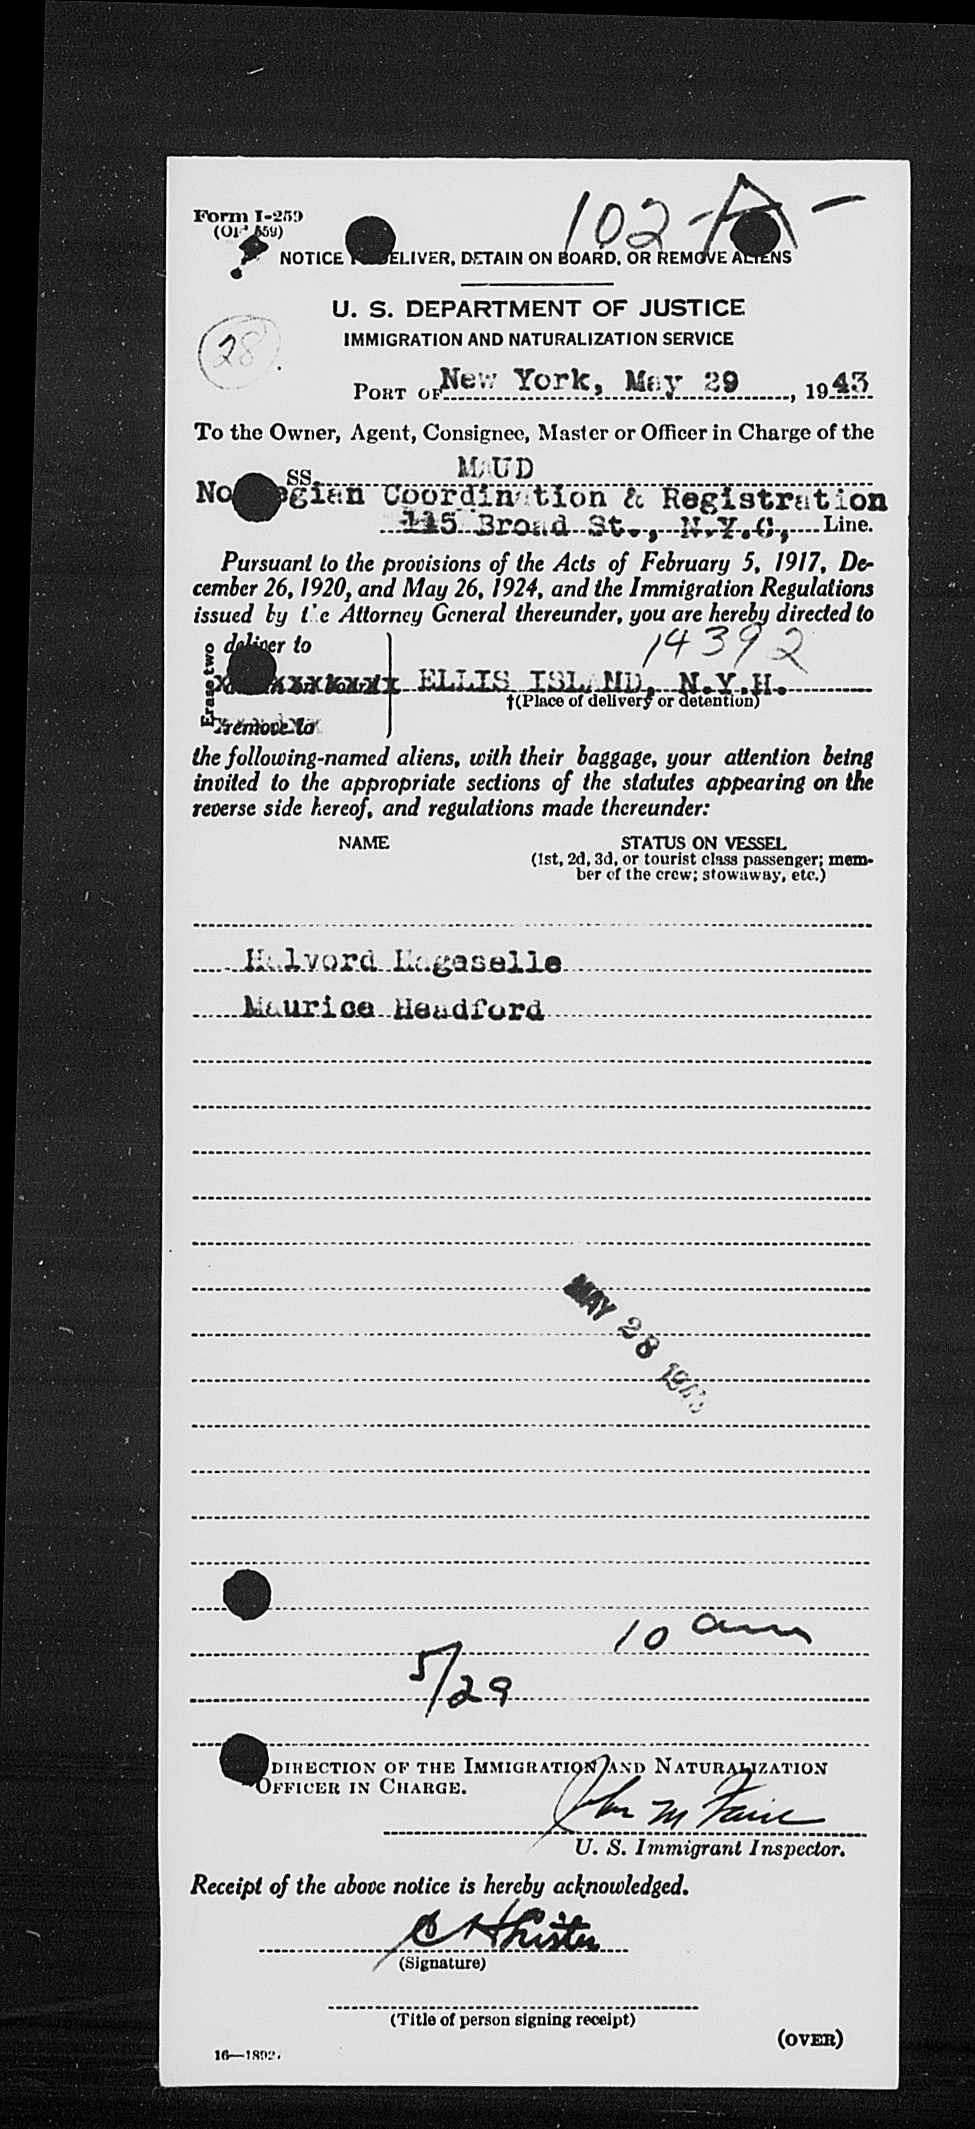 Form I-259
(Old 659)
102-A-
NOTICE TO DELIVER, DETAIN ON BOARD, OR REMOVE ALIENS
U. S. DEPARTMENT OF JUSTICE
IMMIGRATION AND NATURALIZATION SERVICE
28
PORT OF New York, May 29, 1943
To the Owner, Agent, Consignee, Master or Officer in Charge of the
SS. MAUD
Norwegian Coordination & Registration
115 Broad St., N.Y.C, Line.
Pursuant to the provisions of the Acts of February 5, 1917, De-
cember 26, 1920, and May 26, 1924, and the Immigration Regulations
issued by the Attorney General thereunder, you are hereby directed to
deliver to
14392
Erase two
ELLIS ISLAND, N.Y.H.
†(Place of delivery or detention)
remove to
the following-named aliens, with their baggage, your attention being
invited to the appropriate sections of the statutes appearing on the
reverse side hereof, and regulations made thereunder:
NAME STATUS ON VESSEL
(1st, 2d, 3d, or tourist class passenger; mem-
ber of the crew; stowaway, etc.)
Halvord Hagaselle
Maurice Headford
MAY 28 1943
10 am
5/29
DIRECTION OF THE IMMIGRATION AND NATURALIZATION
OFFICER IN CHARGE.
John M
U. S. Immigrant Inspector.
Receipt of the above notice is hereby acknowledged.
(Signature)
(Title of person signing receipt)
(OVER)